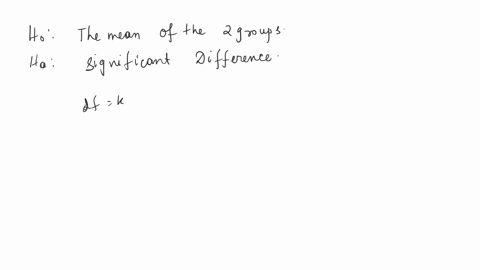 H₀: The mean of the 2 groups.
Ha: Significant Difference.
df = k